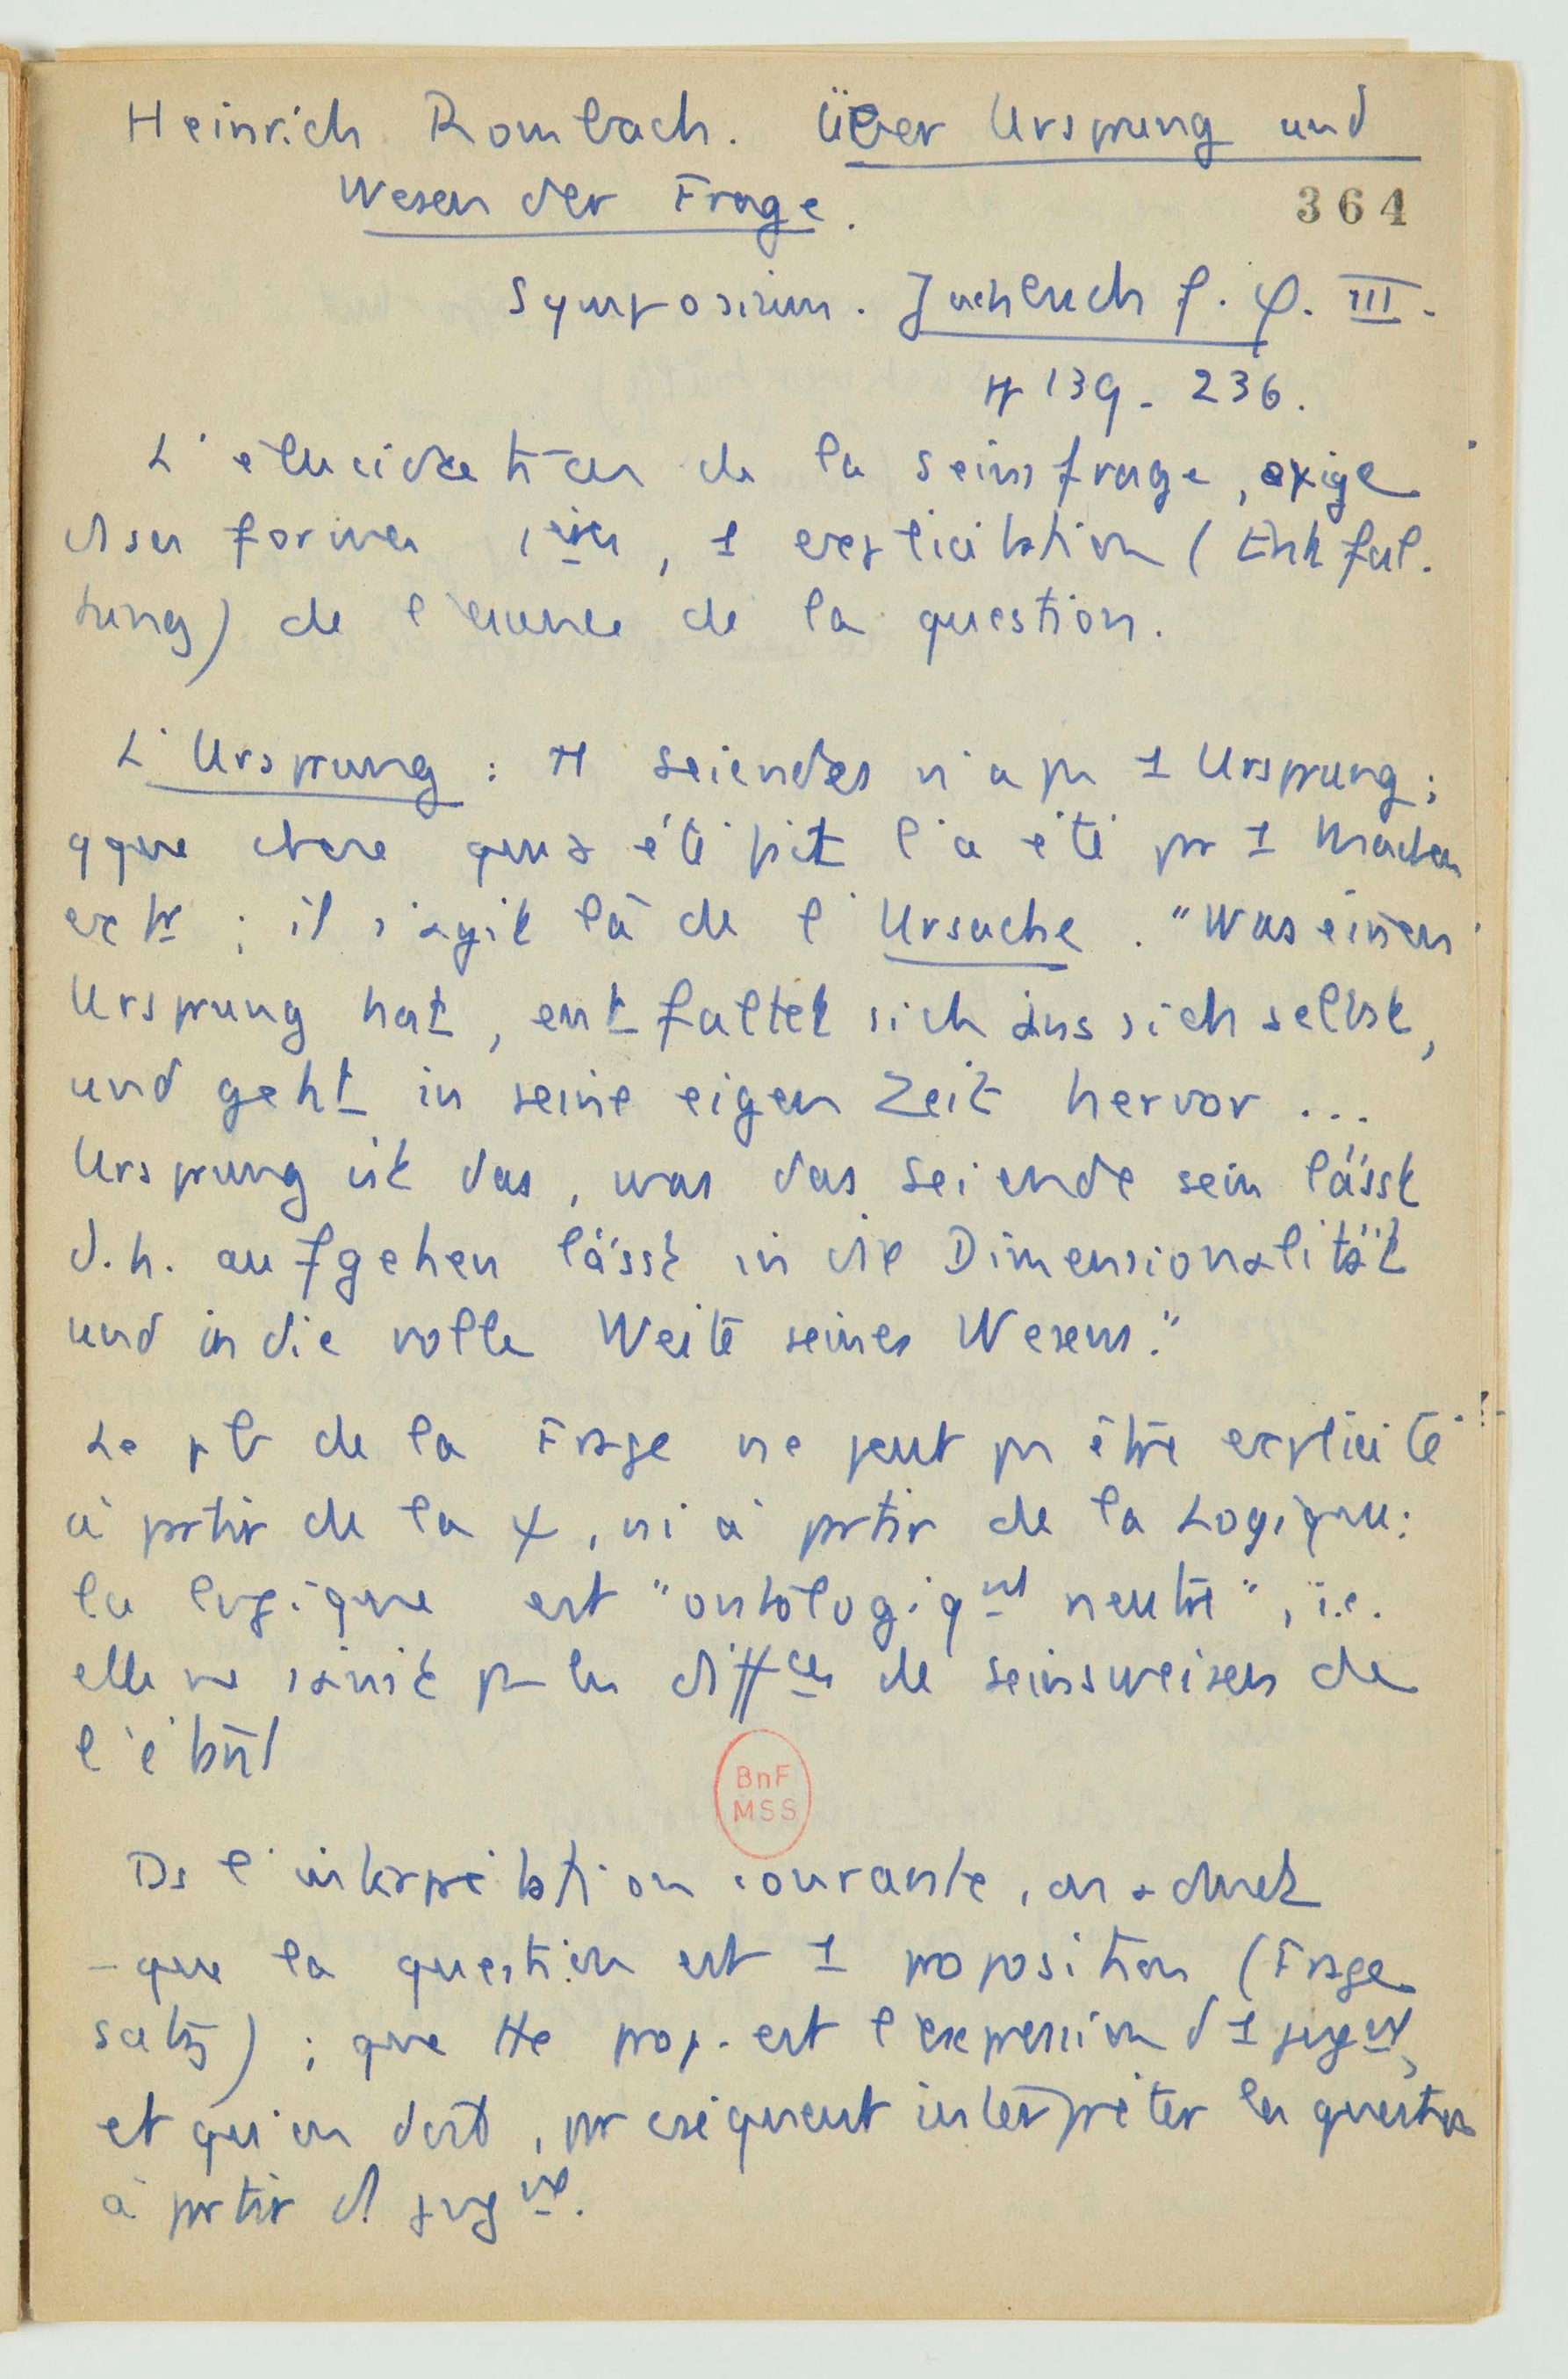 Heinrich Rombach. Über Ursprung und
Wesen der Frage.
364
Symposium. Jahrbuch f. φ. III.
pp 139-236.
L'élucidation de la Seinsfrage, exige
ds sa forme, 1 explicitation (Entfal-
tung) de l'essence de la question.
L'Ursprung : tt Seiendes n'a pas 1 Ursprung ;
qque chose qui a été fait l'a été par 1 Machen
extr ; il s'agit là de l'Ursache. "Was einen
Ursprung hat, entfaltet sich aus sich selbst,
und geht in seine eigen Zeit hervor ...
Ursprung ist das, was das Seiende sein lässt
d.h. aufgehen lässt in die Dimensionalität
und in die volle Weite seines Wesens."
Le pb de la Frage ne peut pas être explicité
à partir de la ψ, ni à partir de la Logique:
la logique est "ontologiqnt neutre", i.e.
elle ne saisit pas les diffces de Seinsweisen de
l'étant
BnF
MSS
Ds l'interprétation courante, on admet
- que la question est 1 proposition (Frage
satz) ; que tte prop. est l'expression d'1 jugnt,
et qu'on doit, par conséquent interpréter les questions
à partir du jugnt.